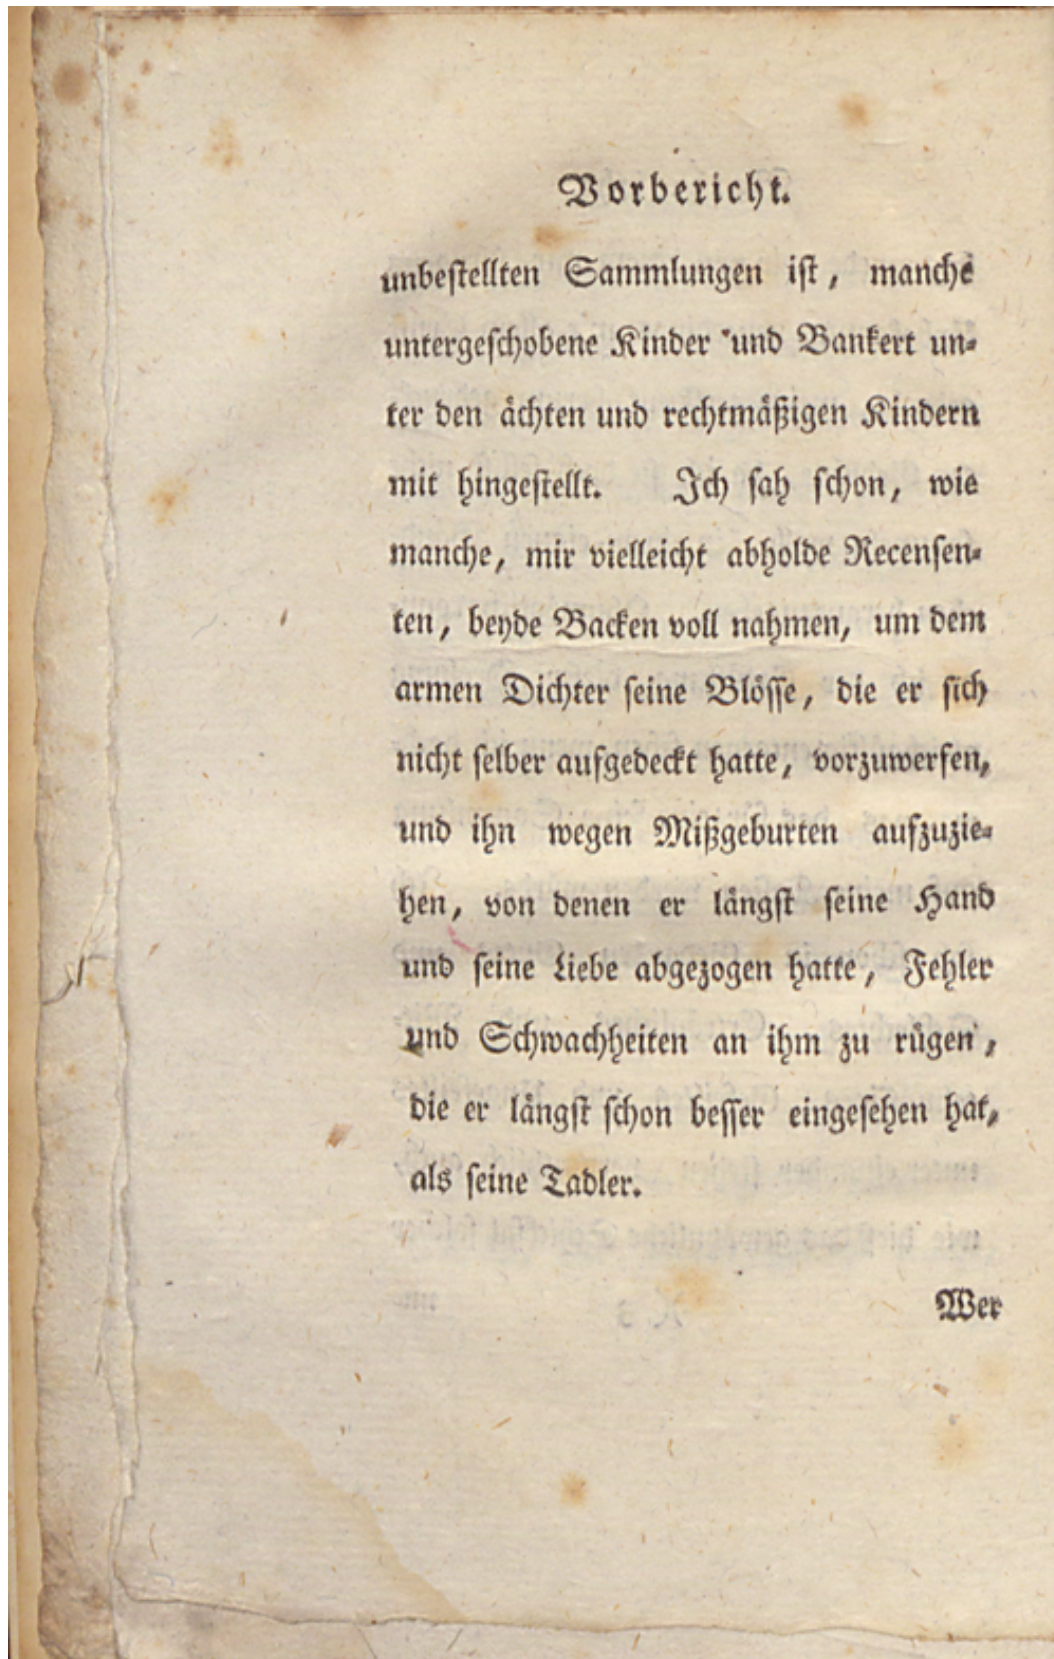 Vorbericht.
unbestellten Sammlungen ist, manche
untergeschobene Kinder und Bankert un-
ter den ächten und rechtmäßigen Kindern
mit hingestellt. Ich sah schon, wie
manche, mir vielleicht abholde Recensen-
ten, beyde Backen voll nahmen, um dem
armen Dichter seine Blösse, die er sich
nicht selber aufgedeckt hatte, vorzuwerfen,
und ihn wegen Mißgeburten aufzuzie-
hen, von denen er längst seine Hand
und seine Liebe abgezogen hatte, Fehler
und Schwachheiten an ihm zu rügen,
die er längst schon besser eingesehen hat,
als seine Tadler.
Wer